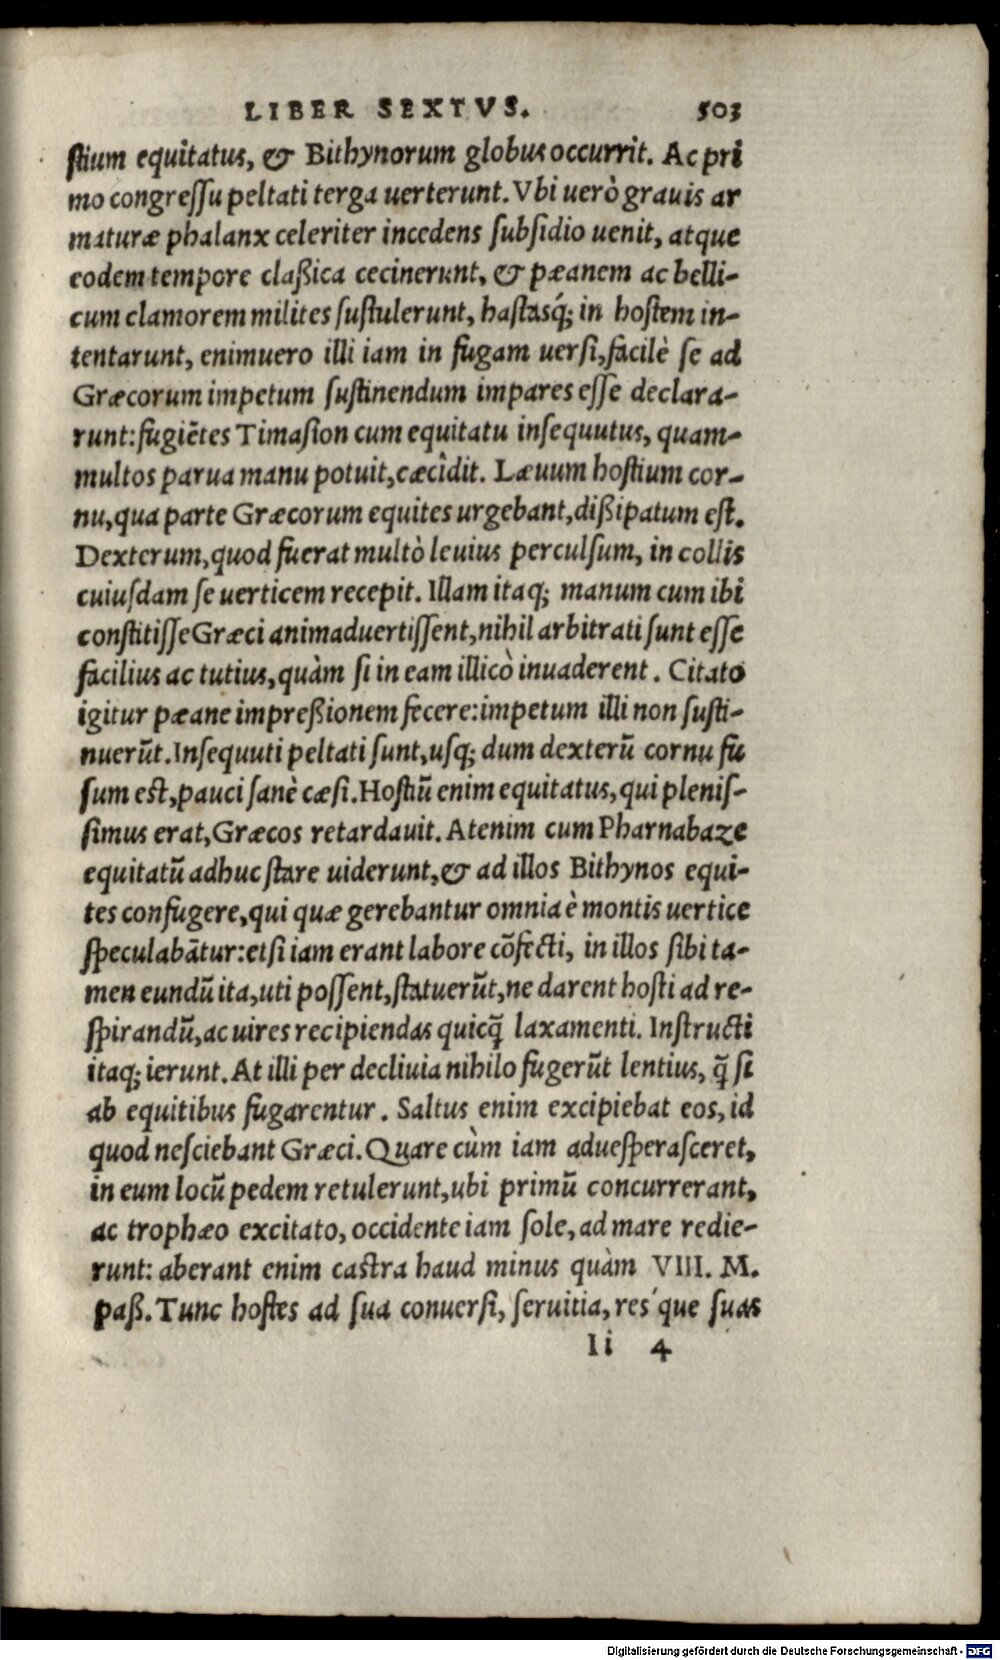 LIBER SEXTVS. 503
ſtium equitatus, & Bithynorum globus occurrit. Ac pri
mo congreſſu peltati terga uerterunt. Vbi uerò grauis ar
maturæ phalanx celeriter incedens ſubſidio uenit, atque
eodem tempore claßica cecinerunt, & pæanem ac belli-
cum clamorem milites ſuſtulerunt, haſtasq́; in hoſtem in-
tentarunt, enimuero illi iam in fugam uerſi, facilè ſe ad
Græcorum impetum ſuſtinendum impares eſſe declara-
runt: fugiẽtes Timaſion cum equitatu inſequutus, quam-
multos parua manu potuit, cæcidit. Læuum hoſtium cor-
nu, qua parte Græcorum equites urgebant, dißipatum eſt.
Dexterum, quod fuerat multò leuius perculſum, in collis
cuiuſdam ſe uerticem recepit. Illam itaq; manum cum ibi
conſtitiſſe Græci animaduertiſſent, nihil arbitrati ſunt eſſe
facilius ac tutius, quàm ſi in eam illicò inuaderent. Citato
igitur pæane impreßionem fecere: impetum illi non ſuſti-
nuerũt. Inſequuti peltati ſunt, uſq; dum dexterũ cornu fu
ſum eſt, pauci ſanè cæſi. Hoſtiũ enim equitatus, qui pleniſ-
ſimus erat, Græcos retardauit. Atenim cum Pharnabaze
equitatũ adhuc ſtare uiderunt, & ad illos Bithynos equi-
tes confugere, qui quæ gerebantur omnia è montis uertice
ſpeculabãtur: etſi iam erant labore cõfecti, in illos ſibi ta-
men eundũ ita, uti poſſent, ſtatuerũt, ne darent hoſti ad re-
ſpirandũ, ac uires recipiendas quicq̃ laxamenti. Inſtructi
itaq; ierunt. At illi per decliuia nihilo fugerũt lentius, q̃ ſi
ab equitibus fugarentur. Saltus enim excipiebat eos, id
quod neſciebant Græci. Quare cùm iam adueſperaſceret,
in eum locũ pedem retulerunt, ubi primũ concurrerant,
ac trophæo excitato, occidente iam ſole, ad mare redie-
runt: aberant enim caſtra haud minus quàm VIII. M.
paß. Tunc hoſtes ad ſua conuerſi, ſeruitia, res'que ſuas
Ii 4
Digitalisierung gefördert durch die Deutsche Forschungsgemeinschaft - DFG